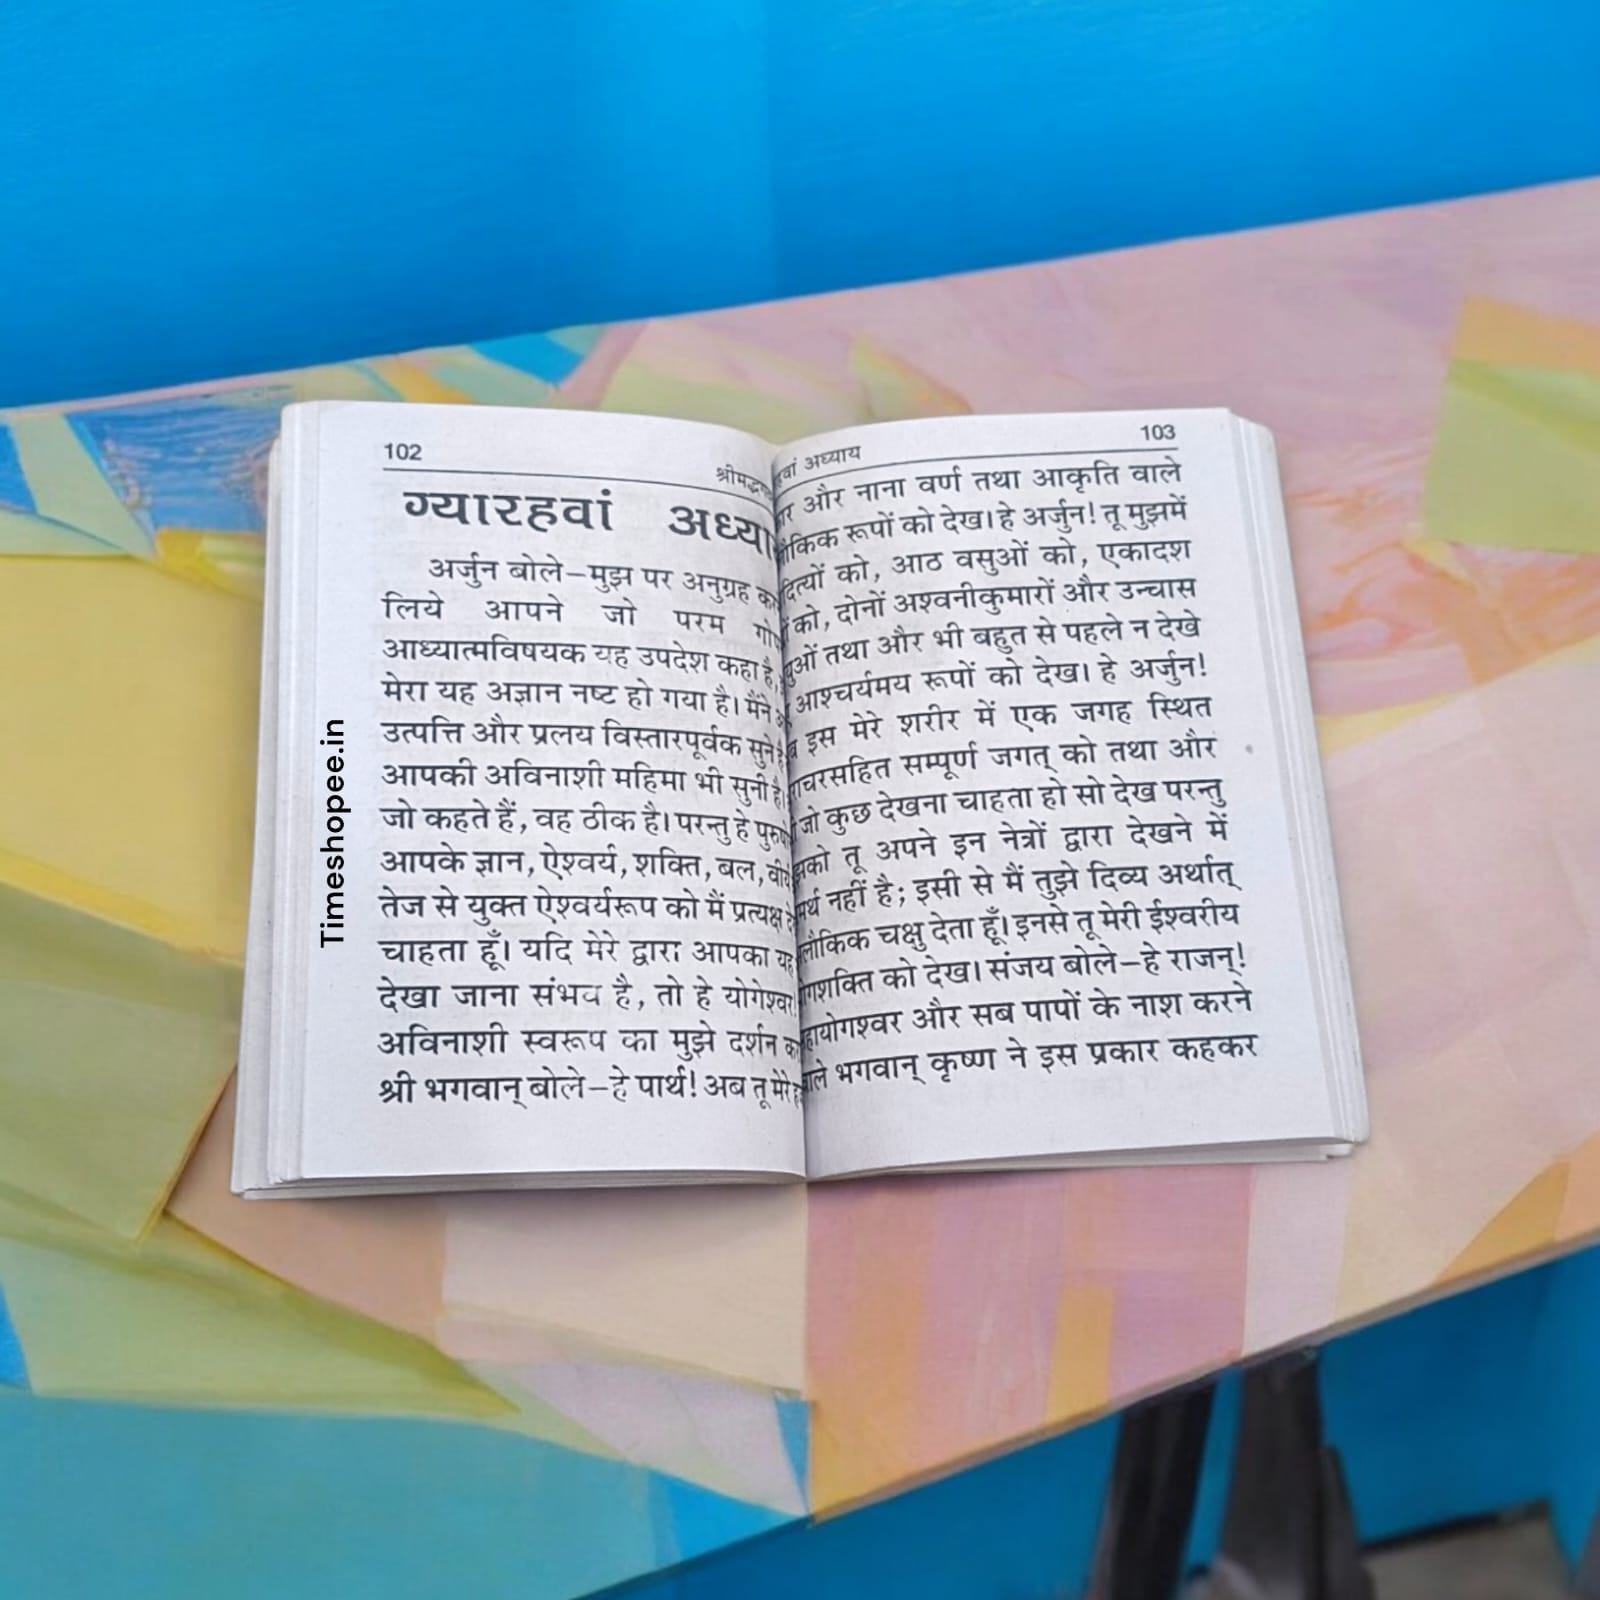 102
ग्यारहवां
अर्जुन बोले–मुझ पर अनुग्रह
लिये आपने जो परम
आध्यात्मविषयक यह उपदेश कहा है,
मेरा यह अज्ञान नष्ट हो गया है। मैंने
उत्पत्ति और प्रलय विस्तारपूर्वक सुने
आपकी अविनाशी महिमा भी सुनी है।
जो कहते हैं, वह ठीक है। परन्तु हे
आपके ज्ञान, ऐश्वर्य, शक्ति, बल,
तेज से युक्त ऐश्वर्यरूप को मैं प्रत्यक्ष
चाहता हूँ। यदि मेरे द्वारा आपका यह
देखा जाना संभव है, तो हे योगेश्वर!
अविनाशी स्वरूप का मुझे दर्शन
श्री भगवान् बोले–हे पार्थ! अब तू मेरे
Timeshopee.in
अध्याय 103
और नाना वर्ण तथा आकृति वाले
रूपों को देख। हे अर्जुन! तू मुझमें
को, आठ वसुओं को, एकादश
को, दोनों अश्वनीकुमारों और उन्चास
तथा और भी बहुत से पहले न देखे
आश्चर्यमय रूपों को देख। हे अर्जुन!
इस मेरे शरीर में एक जगह स्थित
सम्पूर्ण जगत् को तथा और
जो कुछ देखना चाहता हो सो देख परन्तु
तू अपने इन नेत्रों द्वारा देखने में
नहीं है; इसी से मैं तुझे दिव्य अर्थात्
चक्षु देता हूँ। इनसे तू मेरी ईश्वरीय
को देख। संजय बोले–हे राजन्!
और सब पापों के नाश करने
भगवान् कृष्ण ने इस प्रकार कहकर